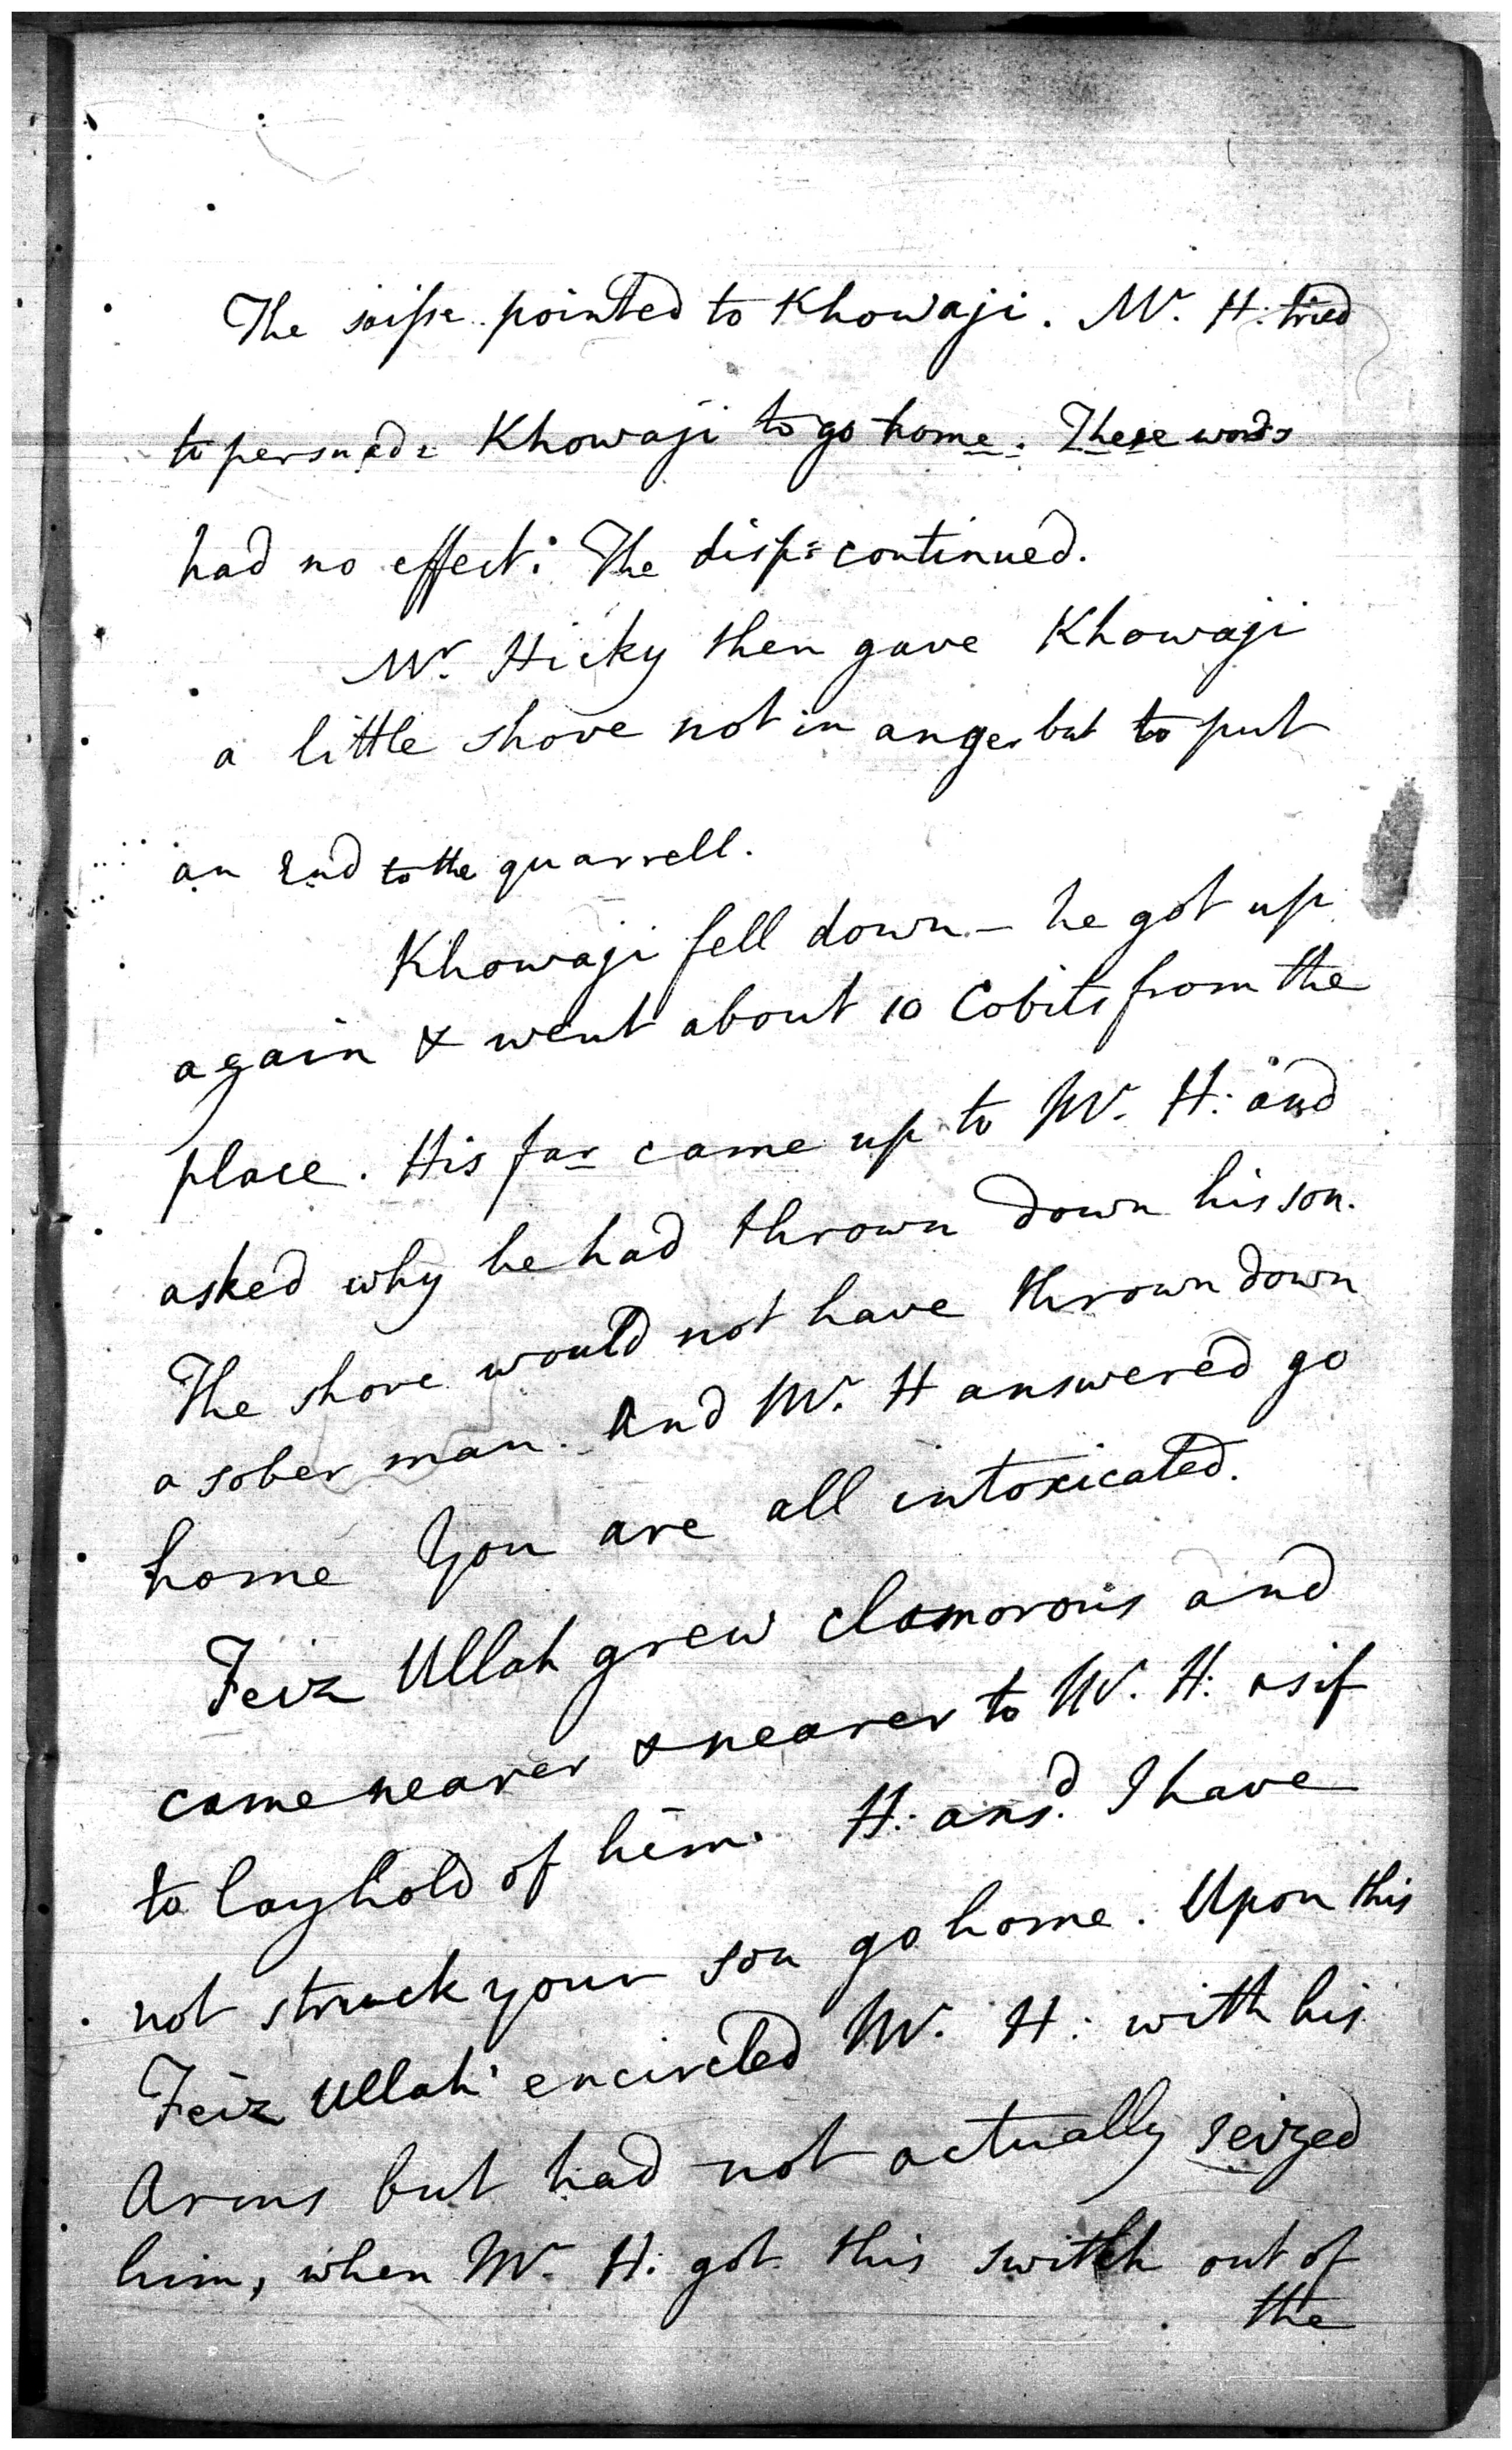 The saise pointed to Khowaji. Mr. H: tried
to persuade Khowaji to go home. These words
had no effect: The disp: continued.
Mr. Hicky then gave Khowaji
a little shove not in anger but to put
an End to the quarrell.
Khowaji fell down - he got up
again & went about 10 Cobits from the
place. His far came up to Mr. H: and
asked why he had thrown down his son.
The shove would not have thrown down
a sober man. And Mr. H answered go
home You are all intoxicated.
Feiz Ullah grew clamorous and
came nearer & nearer to Mr. H: as if
to lay hold of him. H: ansd. I have
not struck your son go home. Upon this
Feiz Ullah encircled Mr. H: with his
Arms but had not actually seized
him, when Mr. H: got this switch out of
the